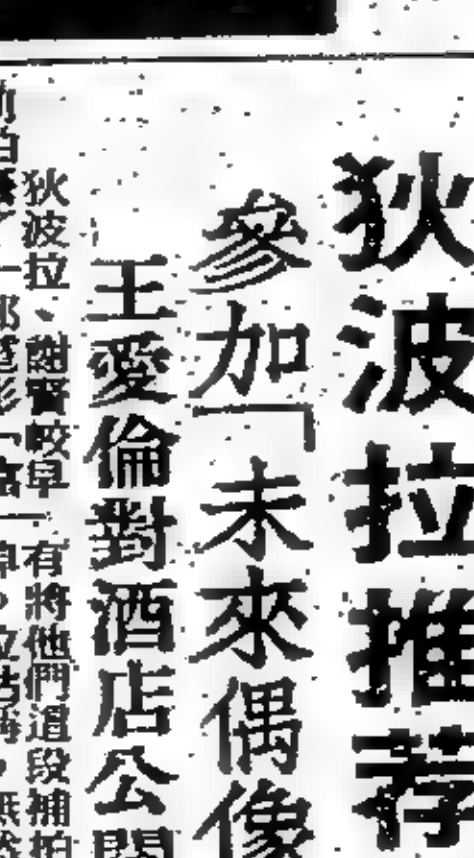 狄波拉推荐
參加「未來偶像
王愛倫對酒店公開
狄波拉、謝賢較早有將他們這段補拍